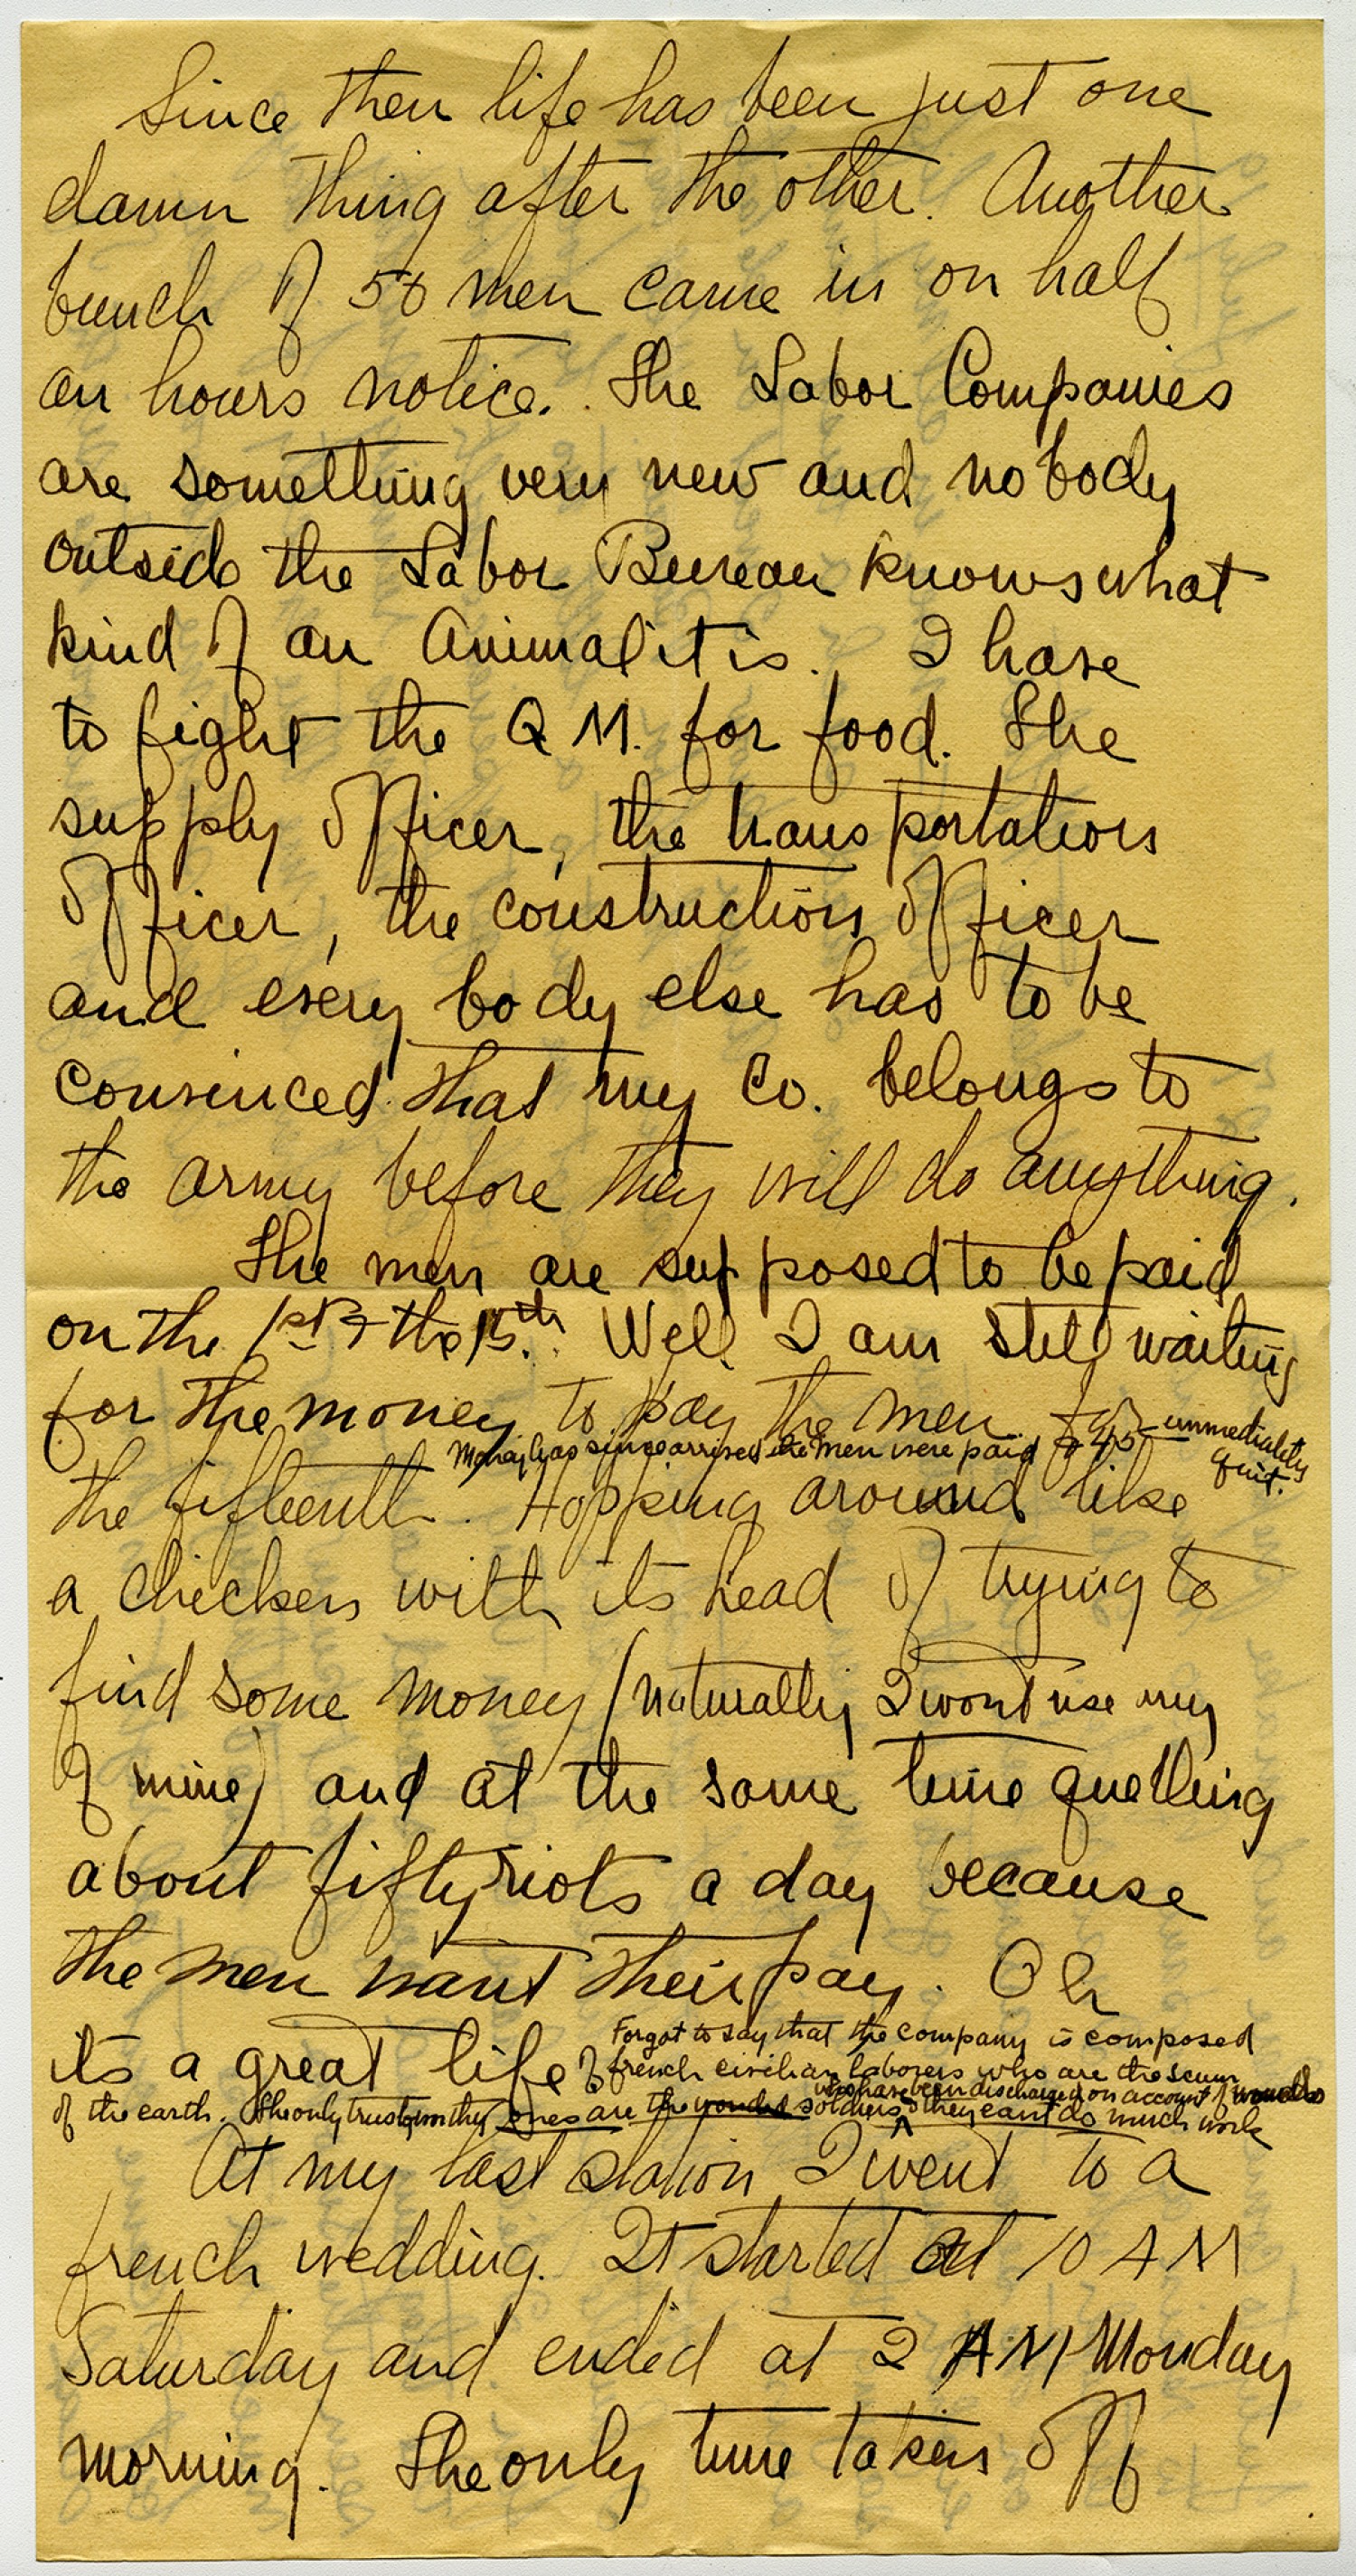 Since then life has been just one
damn thing after the other. Another
bunch of 50 men came in on half
an hours notice. The Labor Companies
are something very new and nobody
outside the Labor Bureau knows what
kind of an Animal it is. I have
to fight the Q M. for food. The
supply officer, the transportation
officer, the construction officer
and every body else has to be
convinced that my Co. belongs to
the army before they will do anything.
The men are supposed to be paid
on the 1st & the 15th. Well I am still waiting
for the money to pay the men for
Money has since arrived the men were paid & 45 immediately
quit.
the fifteenth. Hopping around like
a chicken with its head of trying to
find some money (naturally I wont use my
of mine) and at the same time quelling
about fifty riots a day because
the men want their pay. Oh
its a great life
Forgot to say that the company is composed
of french civilian laborers who are the scum
of the earth. The only trustworthy ones are the wounded soldiers who have been discharged on account of wounds & they cant do much work
At my last station I went to a
french wedding. It started at 10 A M
Saturday and ended at 2 A M Monday
morning. The only time taken off